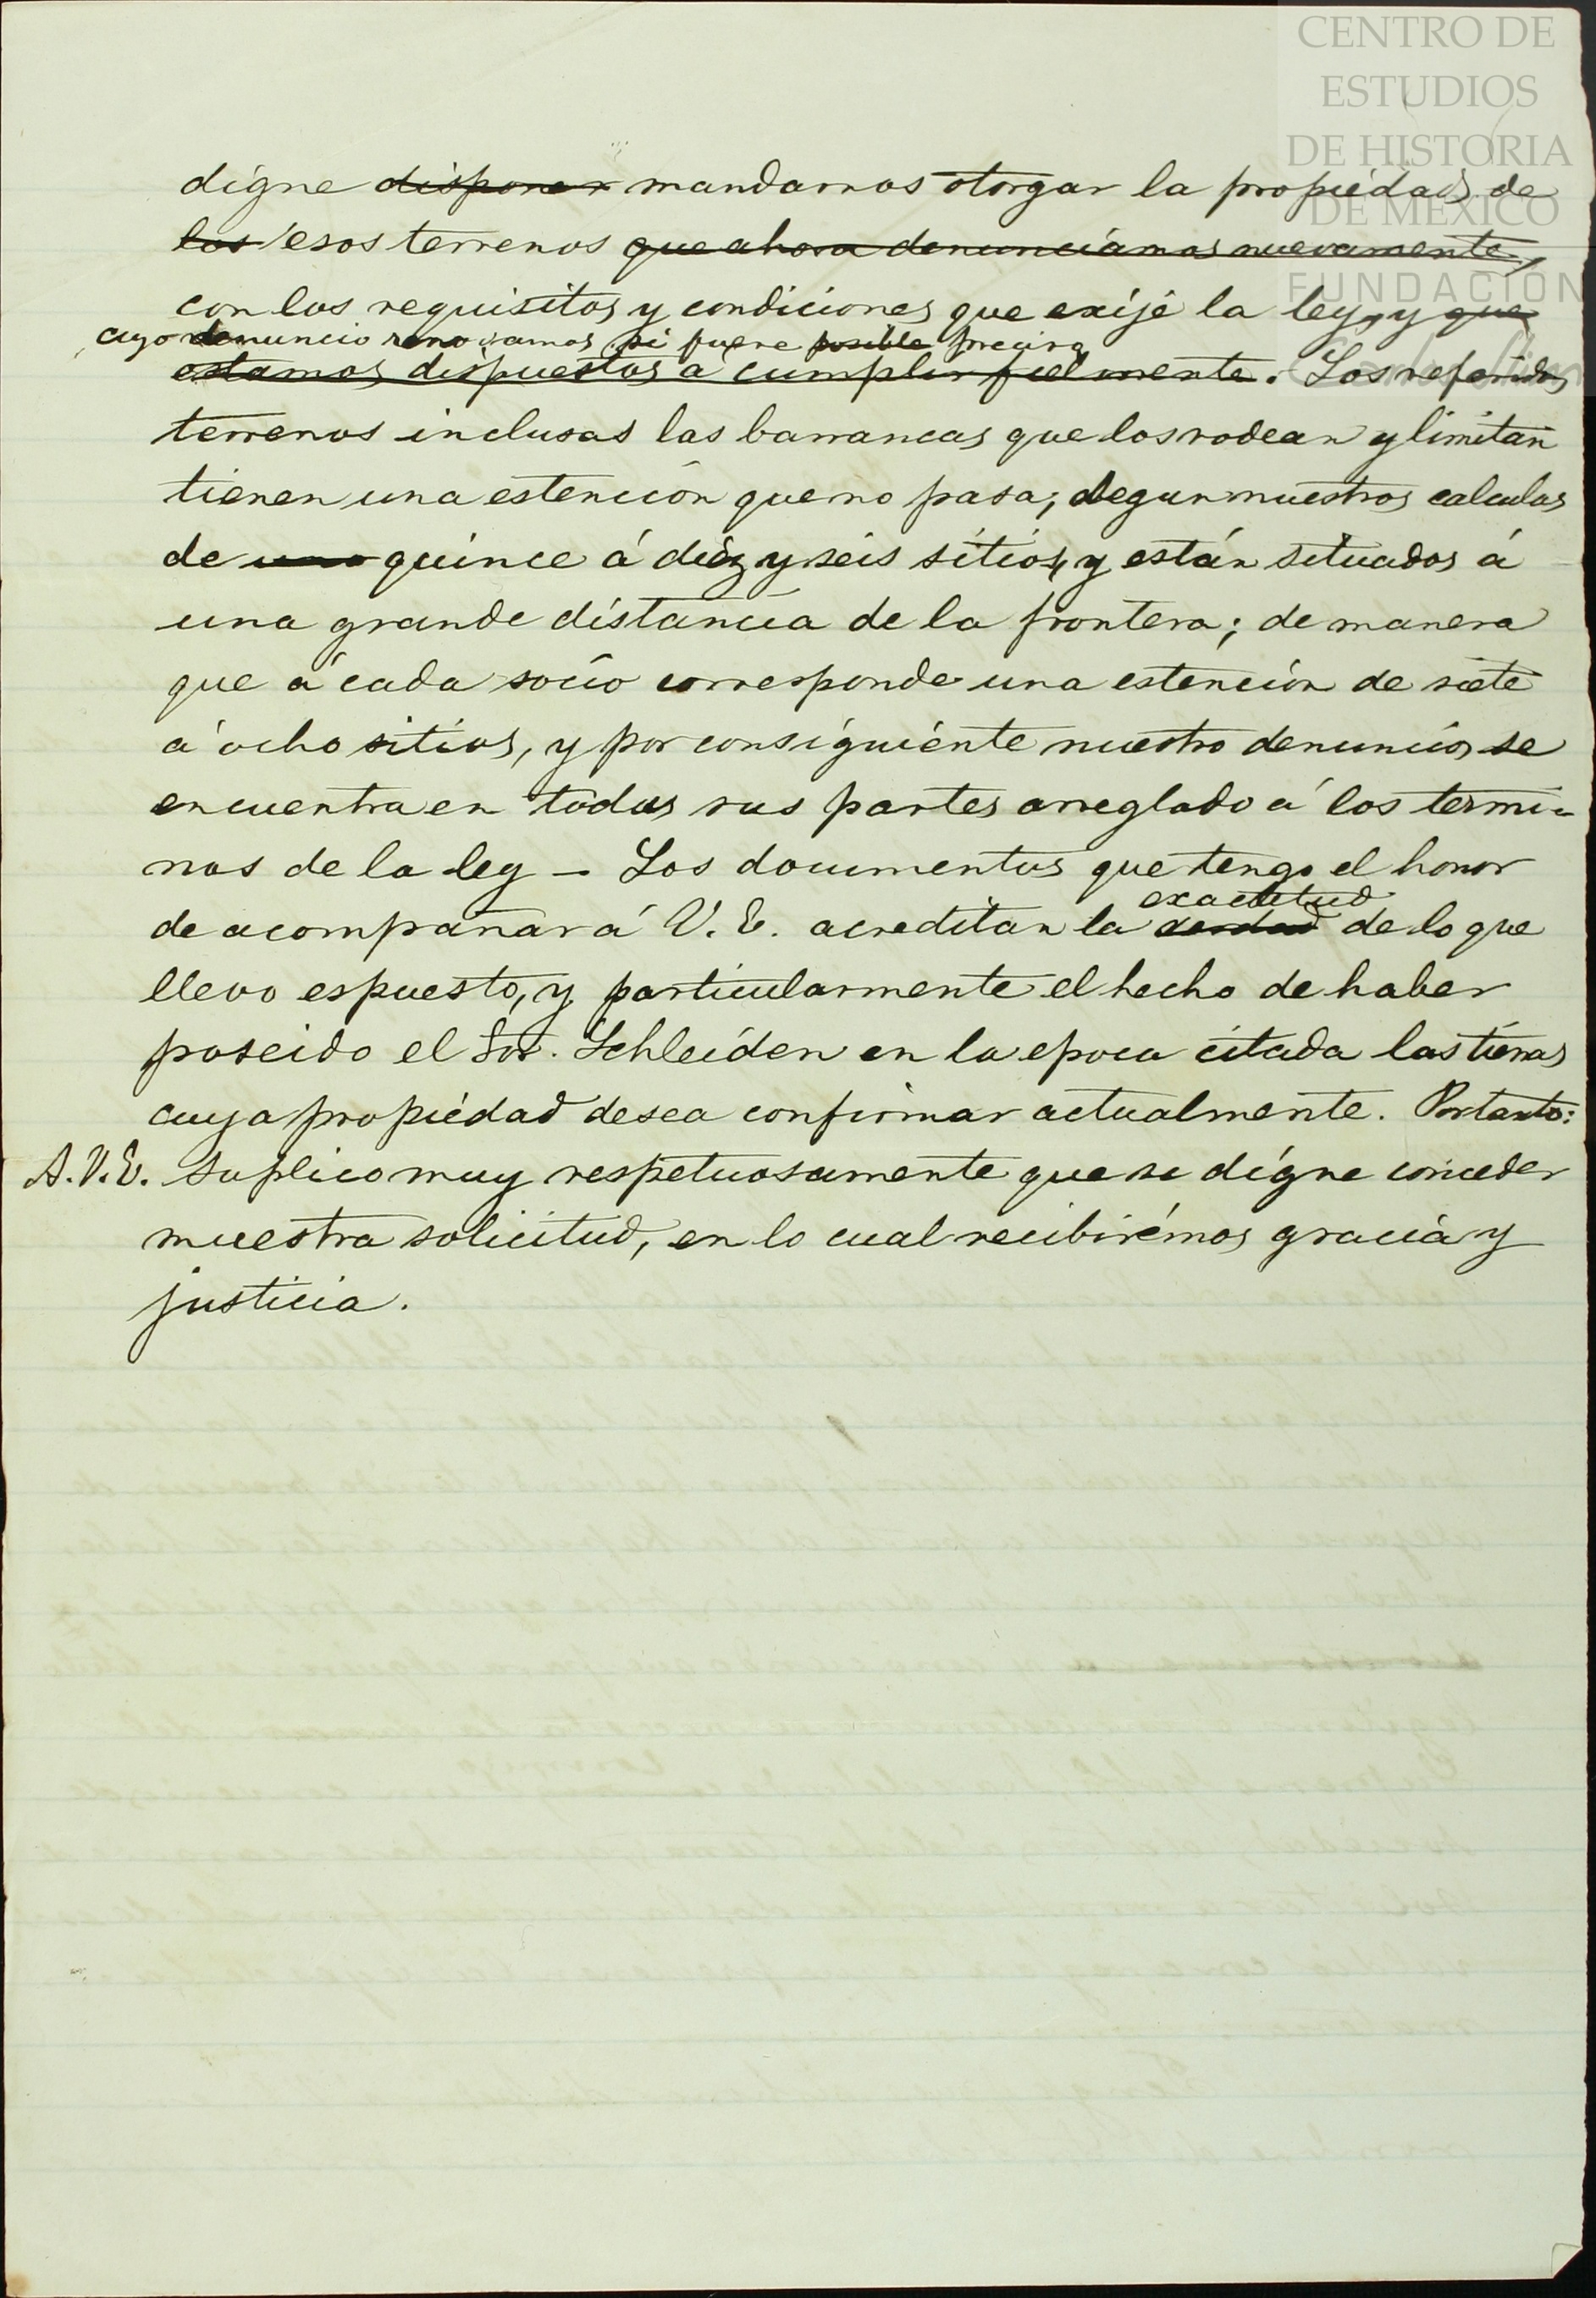 CENTRO DE
ESTUDIOS
DE HISTORIA
DE MÉXICO
FUNDACIÓN
digne disponer mandarnos otorgar la propiedad de
los esos terrenos que ahora denunciamos nuevamente,
con los requisitos y condiciones que exije la ley, y que
cuyo denuncio renovamos si fuere posible preciso
estamos dispuestos a cumplir fielmente. Los referidos
terrenos inclusas las barrancas que los rodean y limitan
tienen una estencion que no pasa, segun nuestros calculos
de quince á diez y seis sitios, y están situados á
una grande distancia de la frontera; de manera
que á cada socio corresponde una estencion de siete
á ocho sitios, y por consiguiente nuestro denuncio se
encuentra en todas sus partes arreglado á los termi-
nos de la ley – Los documentos que tengo el honor
exactitud
de acompañar á V. E. acreditan la verdad de lo que
llevo espuesto, y particularmente el hecho de haber
poseido el Sor. Schleiden en la epoca citada las tierras
cuya propiedad desea confirmar actualmente. Por tanto:
A. V. E. suplico muy respetuosamente que se digne conceder
nuestra solicitud, en lo cual recibirémos gracia y
justicia.